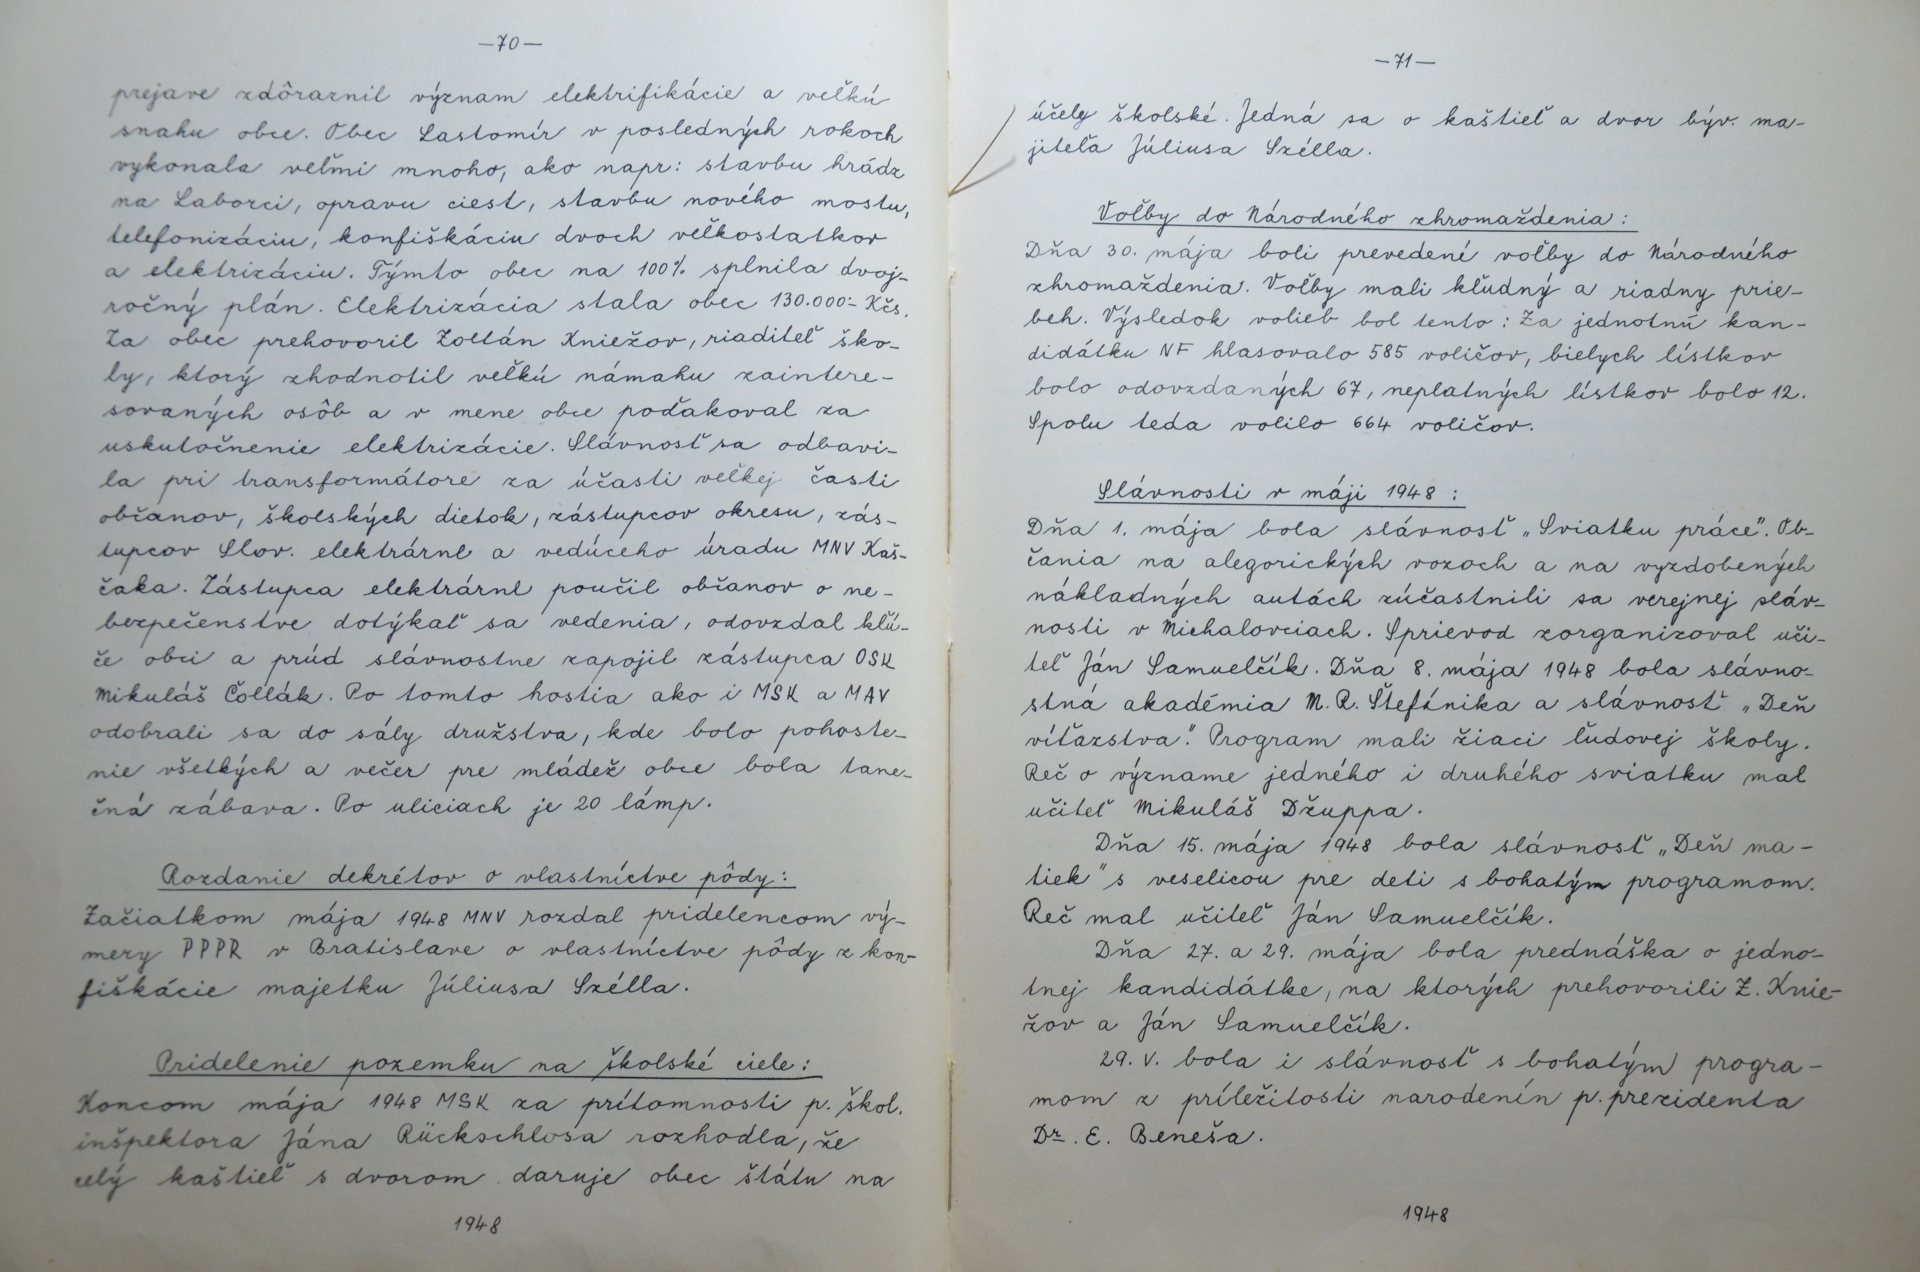 —70—
prejave zdôraznil význam elektrifikácie a veľkú
snahu obce. Obec Lastomír v posledných rokoch
vykonala veľmi mnoho, ako napr: stavbu hrádz
na Laborci, opravu ciest, stavbu nového mostu,
telefonizáciu, konfiškáciu dvoch veľkostatkov
a elektrizáciu. Týmto obec na 100% splnila dvoj-
ročný plán. Elektrizácia stala obec 130.000.- Kčs.
Za obec prehovoril Zoltán Kniežov, riaditeľ ško-
ly, ktorý zhodnotil veľkú námahu zaintere-
sovaných osôb a v mene obce poďakoval za
uskutočnenie elektrizácie. Slávnosť sa odbavi-
la pri transformátore za účasti veľkej časti
občanov, školských dietok, zástupcov okresu, zás-
tupcov Slov. elektrární a vedúceho úradu MNV Kaš-
čaka. Zástupca elektrární poučil občanov o ne-
bezpečenstve dotýkať sa vedenia, odovzdal kľú-
če obci a prúd slávnostne zapojil zástupca OSK
Mikuláš Čollák. Po tomto hostia ako i MSK a MAV
odobrali sa do sály družstva, kde bolo pohoste-
nie všetkých a večer pre mládež obce bola tane-
čná zábava. Po uliciach je 20 lámp.
Rozdanie dekrétov o vlastníctve pôdy:
Začiatkom mája 1948 MNV rozdal pridelencom vý-
mery PPPR v Bratislave o vlastníctve pôdy z kon-
fiškácie majetku Júliusa Szélla.
Pridelenie pozemku na školské ciele:
Koncom mája 1948 MSK za prítomnosti p. škol.
inšpektora Jána Rückschlosa rozhodla, že
celý kaštieľ s dvorom daruje obec štátu na
1948
—71—
účely školské. Jedná sa o kaštieľ a dvor býv. ma-
jiteľa Júliusa Szélla.
Voľby do Národného zhromaždenia:
Dňa 30. mája boli prevedené voľby do Národného
zhromaždenia. Voľby mali kľudný a riadny prie-
beh. Výsledok volieb bol tento: Za jednotnú kan-
didátku NF hlasovalo 585 voličov, bielych lístkov
bolo odovzdaných 67, neplatných lístkov bolo 12.
Spolu teda volilo 664 voličov.
Slávnosti v máji 1948:
Dňa 1. mája bola slávnosť „Sviatku práce". Ob-
čania na alegorických vozoch a na vyzdobených
nákladných autách zúčastnili sa verejnej sláv-
nosti v Michalovciach. Sprievod zorganizoval uči-
teľ Ján Samuelčík. Dňa 8. mája 1948 bola slávno-
stná akadémia M. R. Štefínika a slávnosť „Deň
víťazstva". Program mali žiaci ľudovej školy.
Reč o význame jedného i druhého sviatku mal
učiteľ Mikuláš Džuppa.
Dňa 15. mája 1948 bola slávnosť „Deň ma-
tiek" s veselicou pre deti s bohatým programom.
Reč mal učiteľ Ján Samuelčík.
Dňa 27. a 29. mája bola prednáška o jedno-
tnej kandidátke, na ktorých prehovorili Z. Knie-
žov a Ján Samuelčík.
29. V. bola i slávnosť s bohatým progra-
mom z príležitosti narodenín p. prezidenta
Dr. E. Beneša.
1948